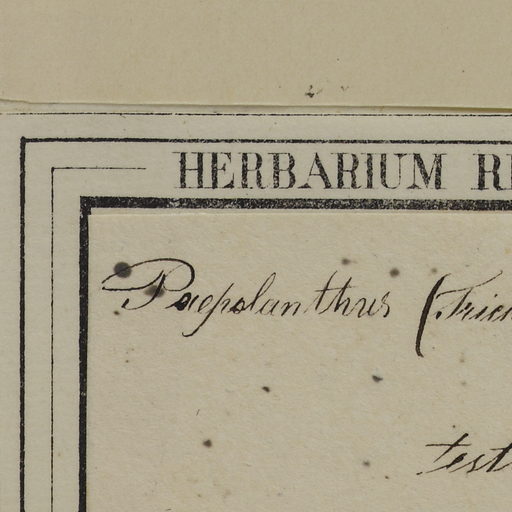 HERBARIUM
Paepolanthus
test